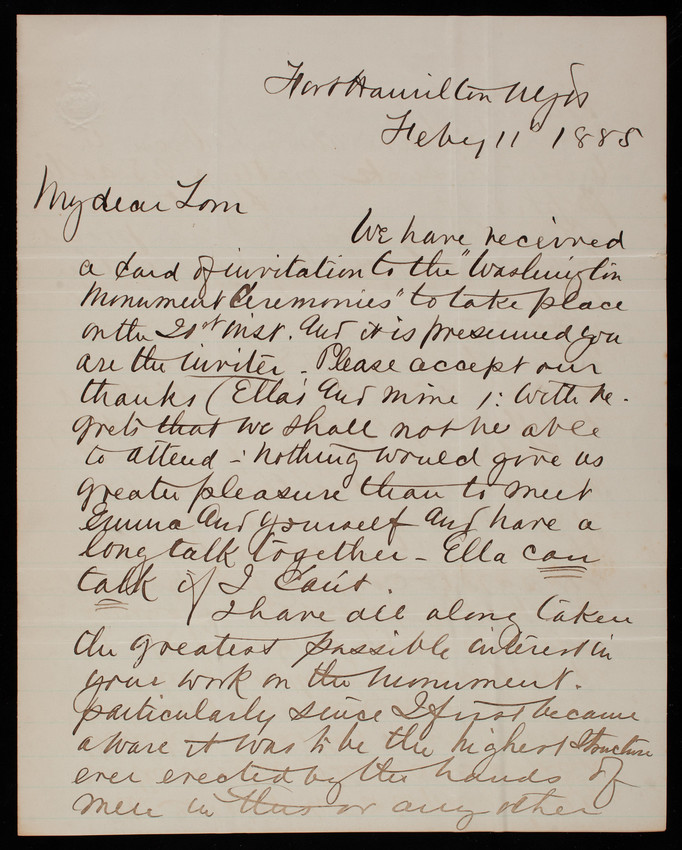 Fort Hamilton NYds
Feby 11th 1885
My dear Tom
We have received
a Card of invitation to the "Washington
Monument Ceremonies" to take place
on the 21st inst. And it is presumed you
are the inviter - Please accept our
thanks (Ella's And mine): With re-
grets that we shall not be able
to attend - : Nothing would give us
greater pleasure than to meet
Emma And yourself And have a
long talk together - Ella can
talk if I Can't.
I have all along taken
the greatest possible interest in
your work on the Monument.
particularly since I first became
aware it was to be the highest Structure
ever erected by the hands of
men in this or any other